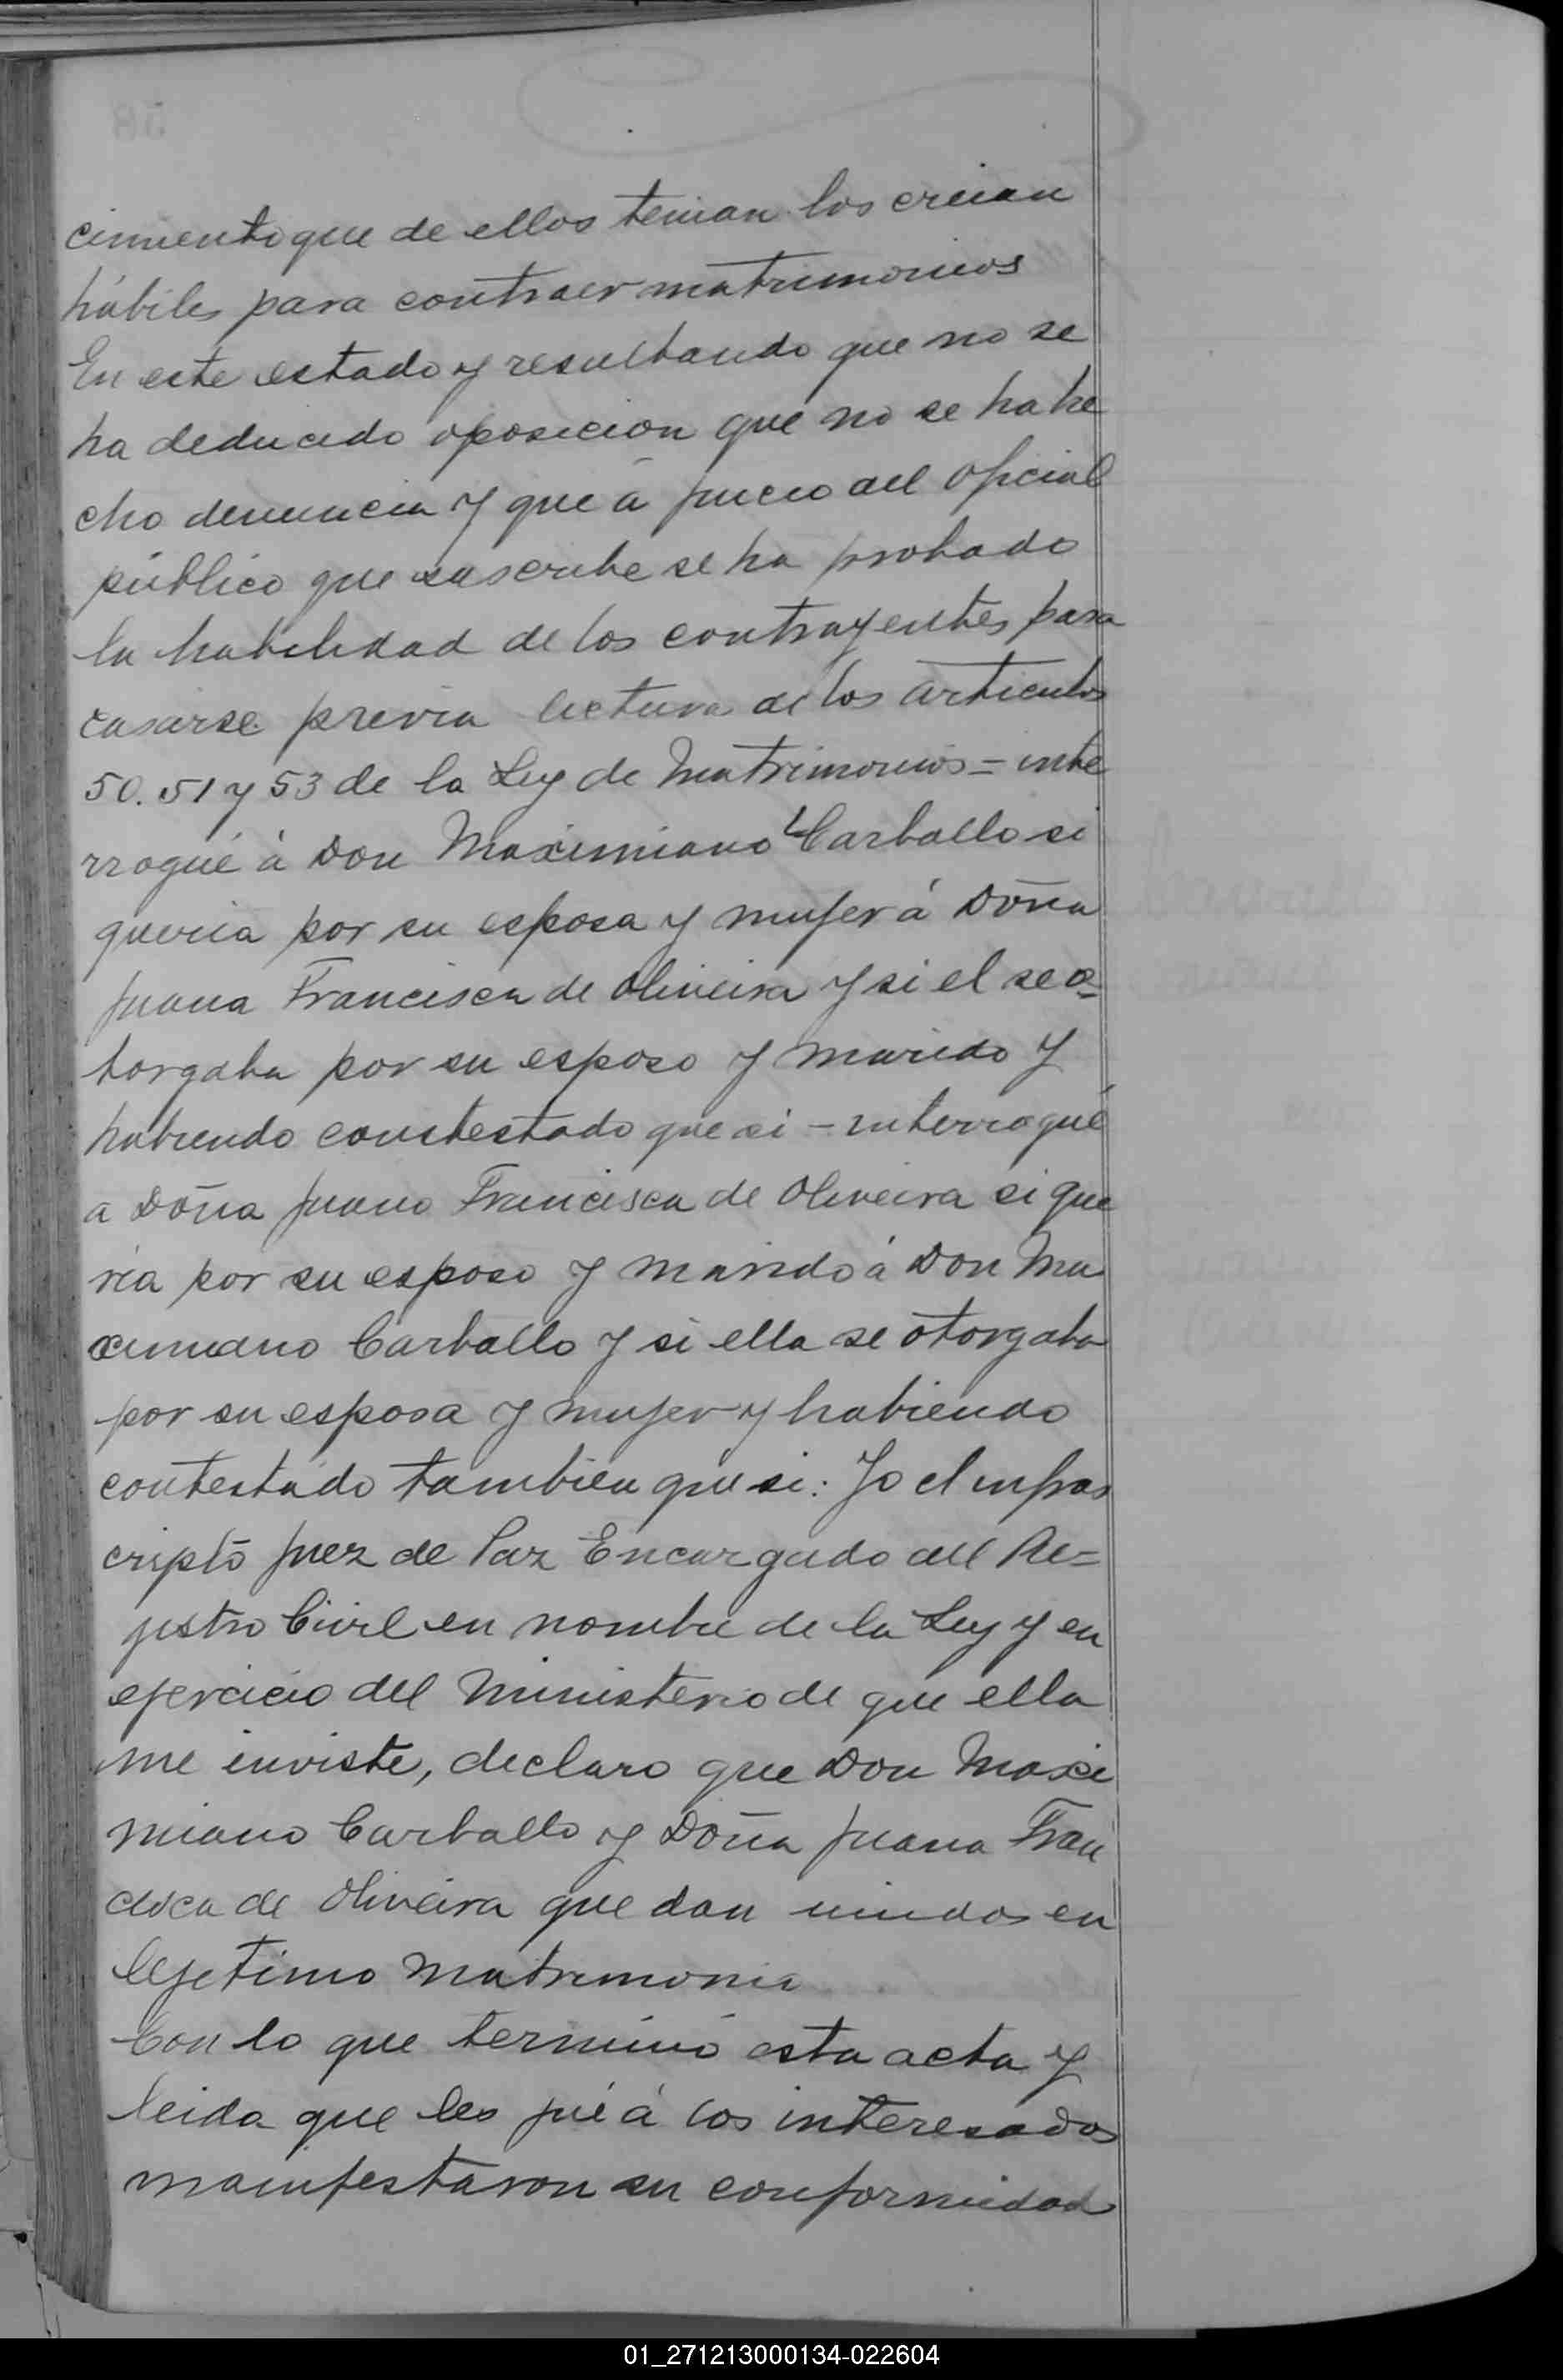 cimiento que de ellos tenian los creian
hábiles para contraer matrimonios
En este estado y resultando que no se
ha deducido oposicion que no se ha he
cho denuncia y que á juicio del oficial
público que suscribe se ha probado
la habilidad de los contrayentes para
casarse previa lectura de los articulos
50. 51 y 53 de la Ley de Matrimonios = inte
rrogué á Don Maximiano Carballo si
queria por su esposa y mujer á Doña
Juana Francisca de Oliveira y si el se o=
torgaba por su esposo y marido y
habiendo constestado que si - interrogué
a Doña Juana Francisca de Oliveira si que
ria por su esposo y marido á Don Ma
ximiano Carballo y si ella se otorgaba
por su esposa y mujer y habiendo
contestado tambien que si: Yo el infras
cripto Juez de Paz Encargado del Re=
jistro Civil en nombre de la Ley y en
ejercicio del Ministerio de que ella
me inviste, declaro que Don Maxi
miano Carballo y Doña Juana Fran
cisca de Oliveira que dan unidos en
lejetimo Matrimonio
Con lo que terminó esta acta y
leida que les fué á los interesados
manifestaron su conformidad
01_271213000134-022604